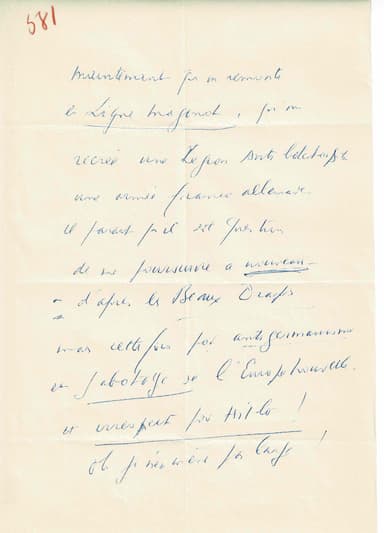 581
maintenant qu'on remonte
la Ligne Maginot, qu'on
recrée une Légion Anti bolchevik
une armée franco allemande
il parait qu'il est question
de me poursuivre à nouveau
d'après les Beaux Draps
mais cette fois pour antigermanisme
et Sabotage de l'Europe nouvelle
et irrespect pour Hitler !